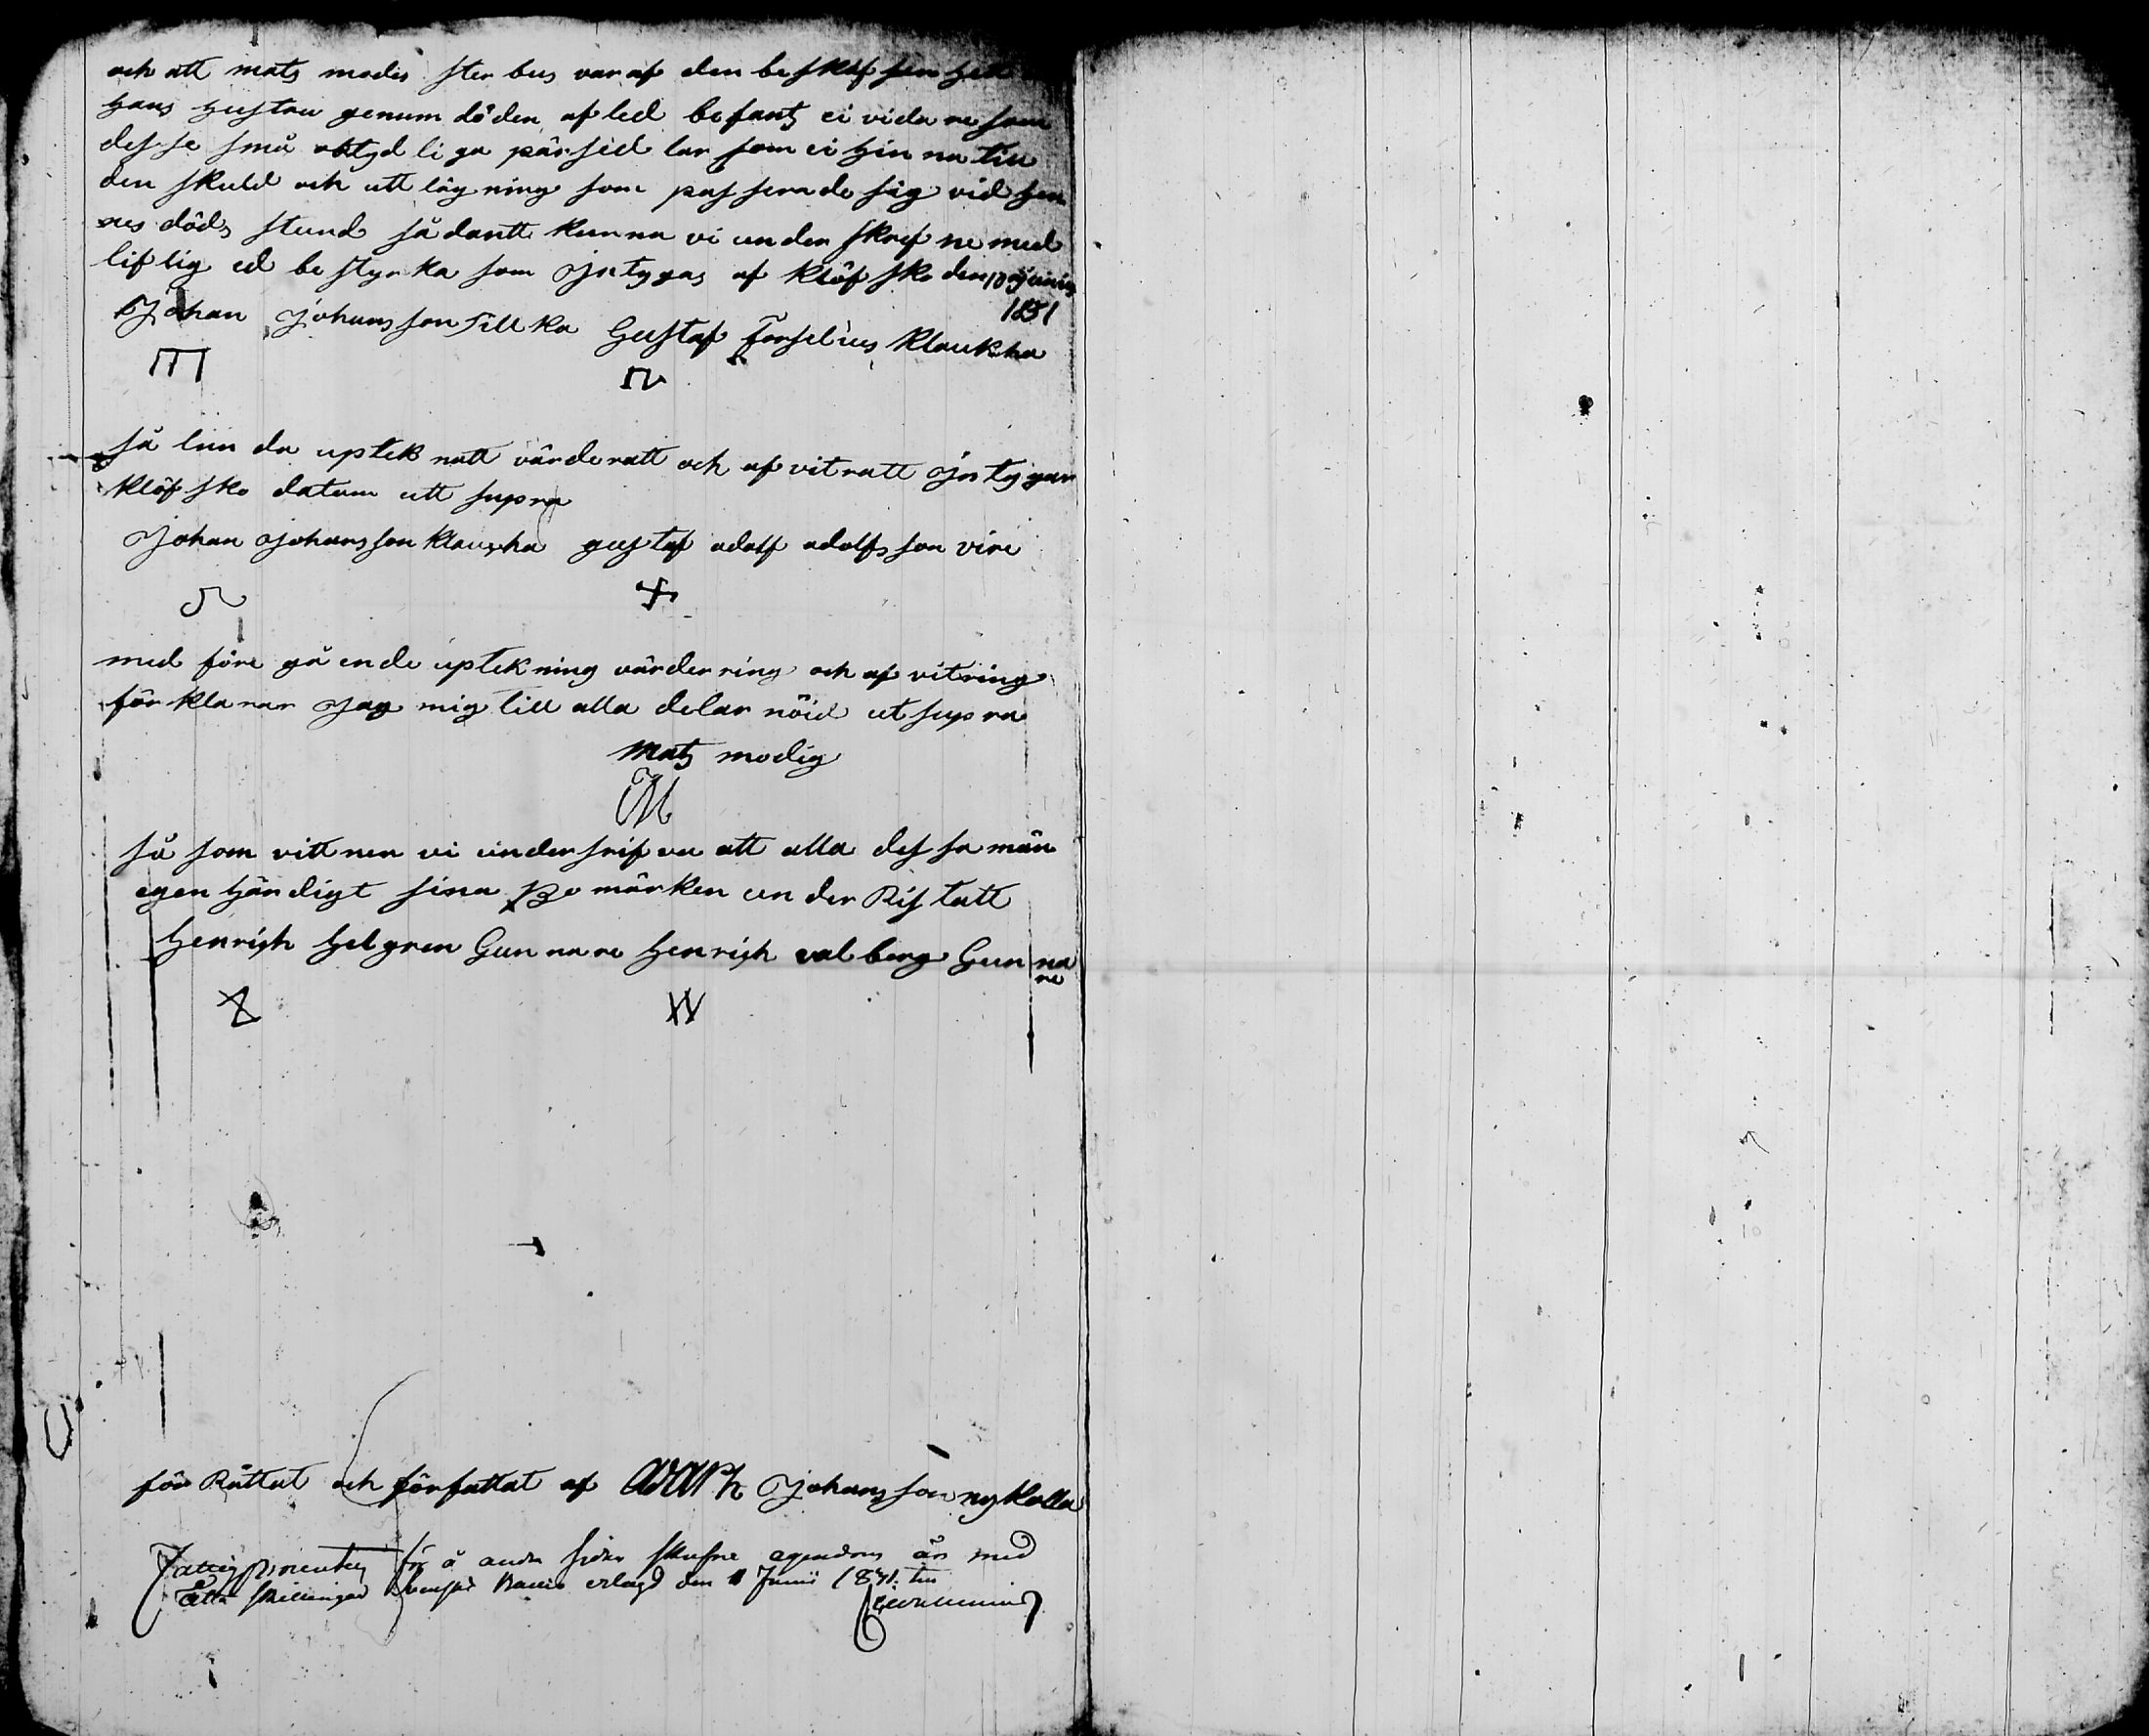 och att mats modis ster bus var af den be skaf fen het
hans hustru genum döden af led befantz ei vida re som
des se små obtyd li ga pärsed lar som ei hin na till
den skuld och utt läg ning som pas serade sig vid hen
nes döds stund så dantt kunna vi un der skref ne med
lif lig ed be styr ka som jn tygas af klöf sko den 10 junius
1831
Johan Johansson Till ka Gustaf Forselius Klaukka
så lun da uptek natt värderatt och af vit ratt jn ty gar
klöf sko datum utt supra
Johan Johansson Klaukka gustaf adolf adolfs son vire
med före gå ende uptekning värderring och af vitring
för kla rar jag mig till alla delar nöid ut supra
Matz modig
M
så som vitt nen vi under srif va att alla des sa män
egen händigt sina Bo märken un der Ris tatt
Henrich Helgren Gun na re Henrich val berg Gun na
re
för Rättat och författat af Johansson nykalla
för å andra sidan skrefne egendom är med
Åtta skillingar Banco erlagd den 11 Junii 1831